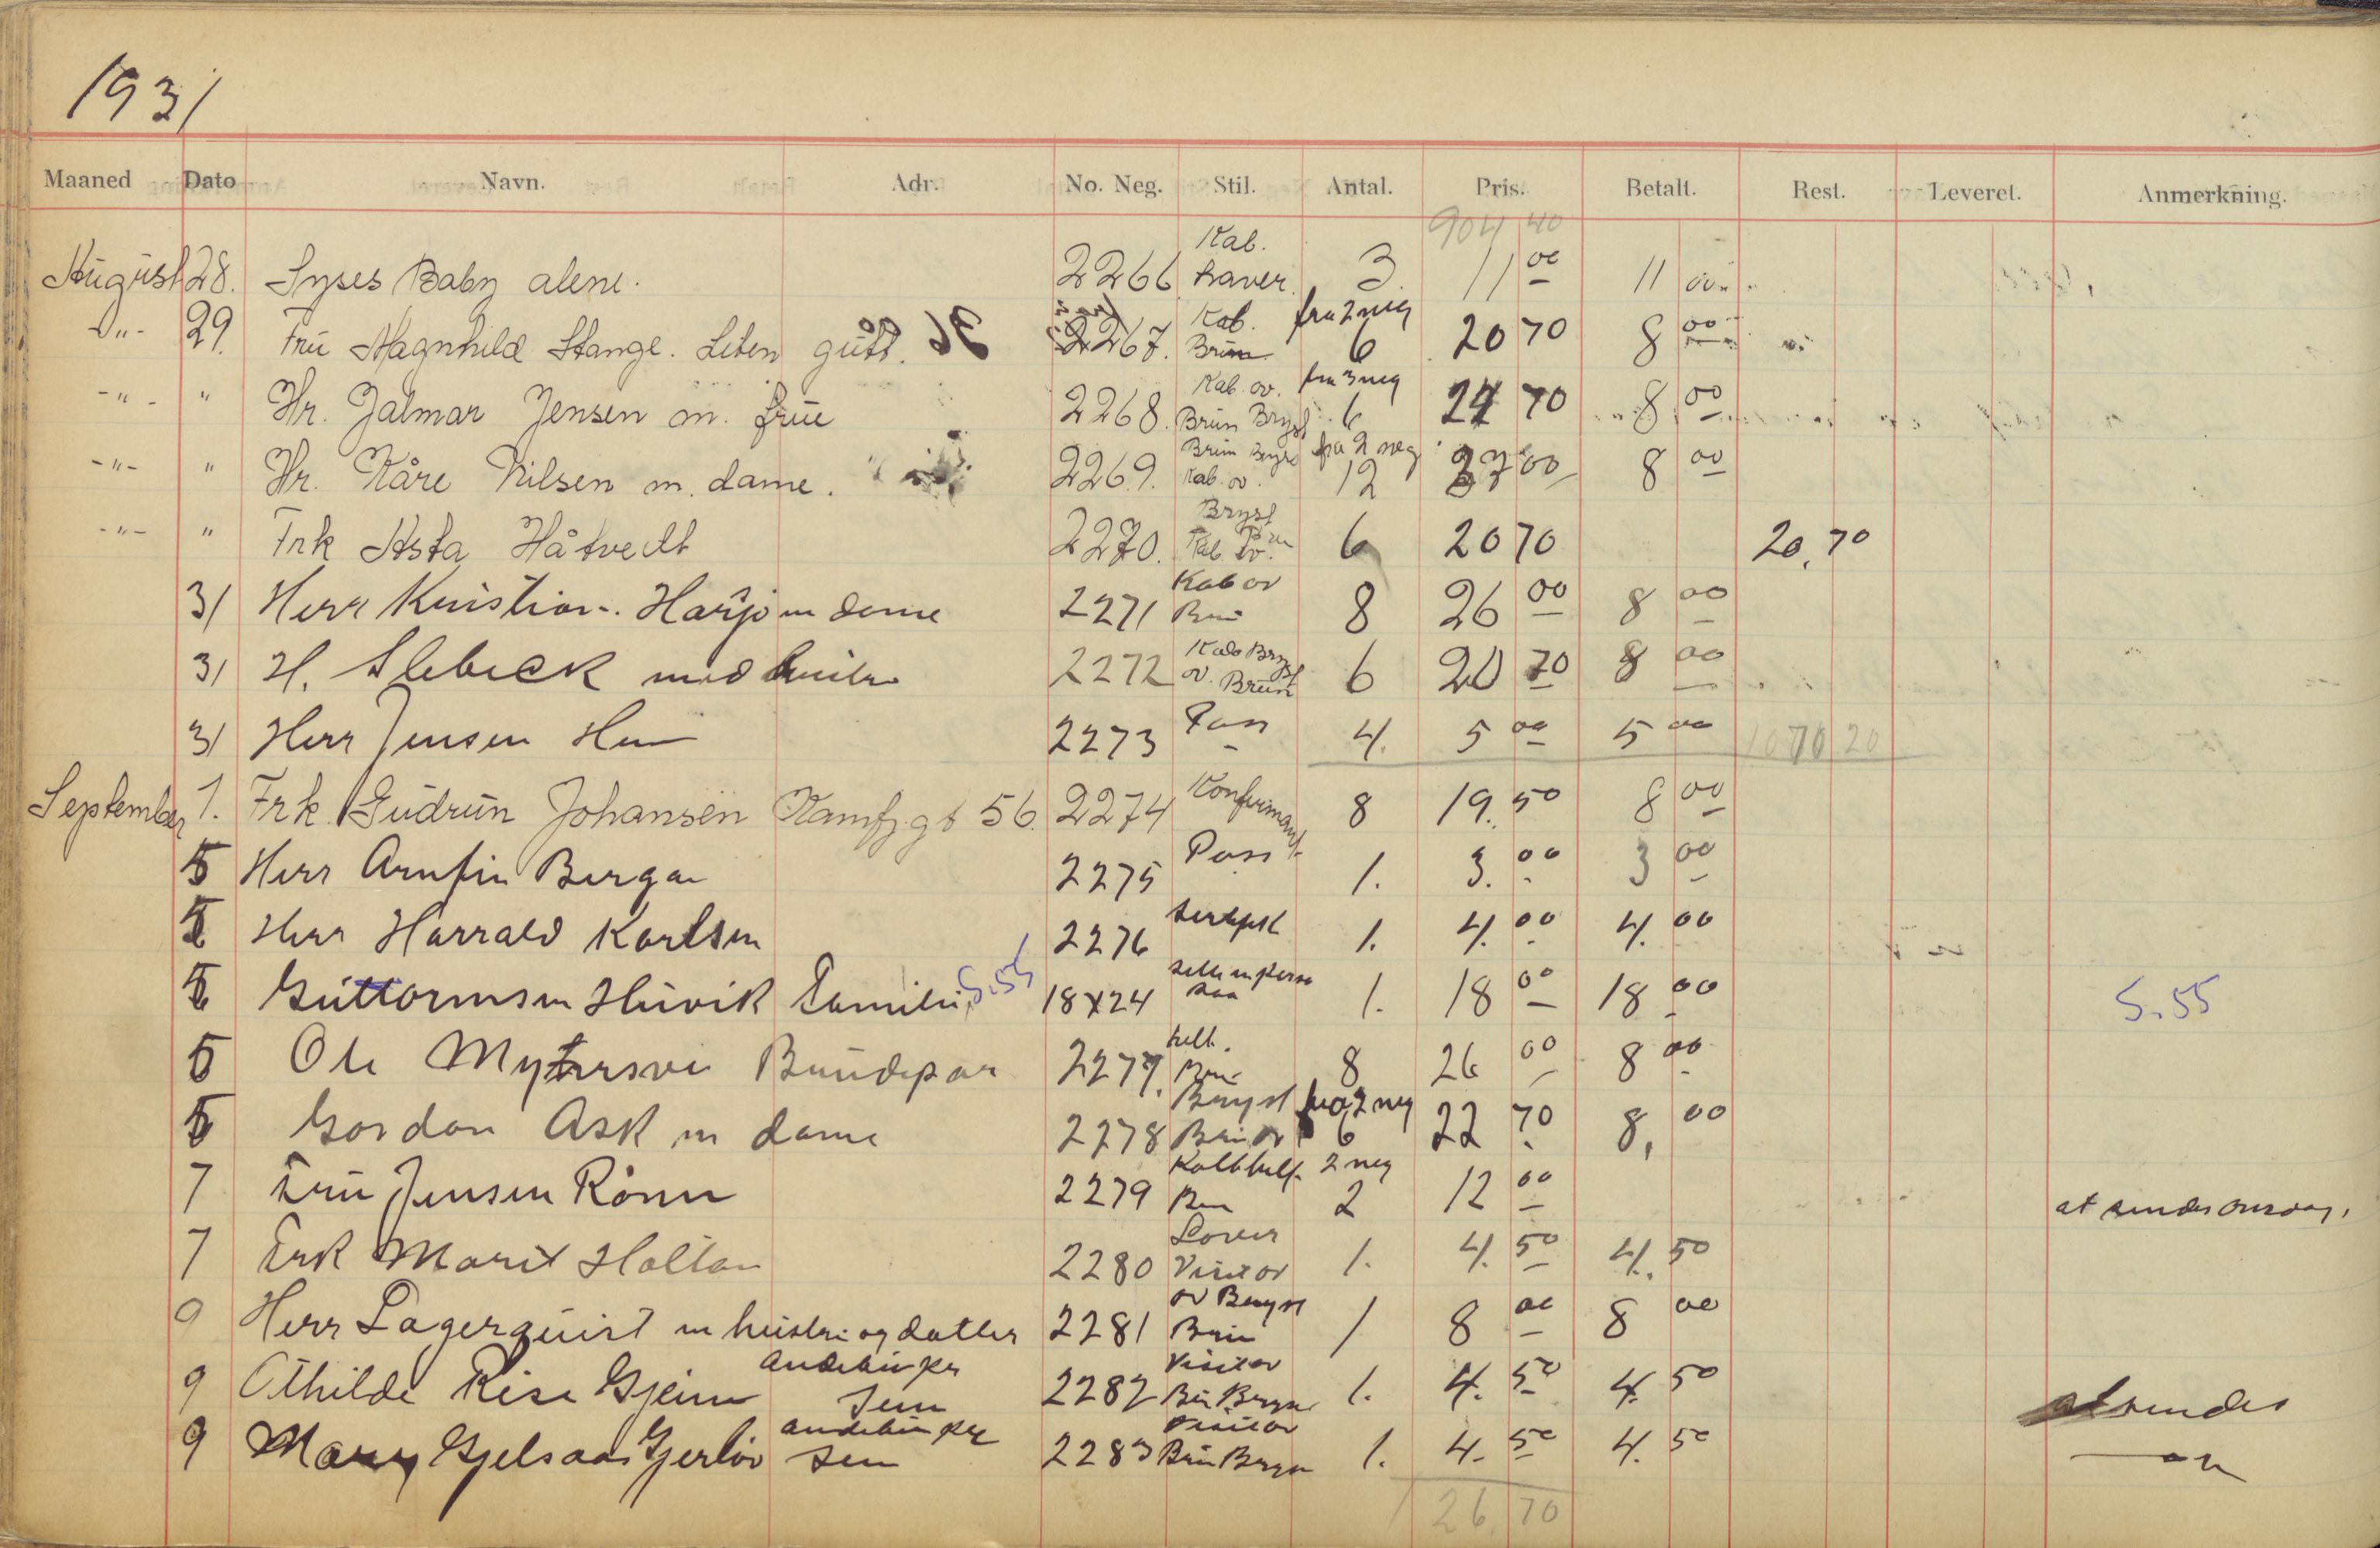 1931
Maaned Dato Navn. Adr. No. Neg. Stil. Antal. Pris. Betalt. Rest. Leveret. Anmerkning.
904 40
August 28. Syses Baby alene. 2266 Kab. haver. 3 11 00 11 00
29. Fru Magnhild Stange. Liten gutt. 2267. Kab. Brun fra 2 neg 6 20 70 8 00
-"- " Hr. Jalmar Jensen m. frue 2268. Kab. ov. Brun Bryst fra 3 neg 6 24 70 8 00
-"- " Hr. Kåre Nilsen m. dame. 2269. Brun Bryst Kab. ov. fra 2 neg 12 37 00 8 00
-"- " Frk Asta Håtvedt 2270. Bryst Brun Kab ov. 6 20 70 20,70
31 Herr Kristian Harjo m dame 2271 Kab ov Brun 8 26 00 8 00
31 H. Slebick med 2272 Kab Bryst ov. Brun 6 20 70 8 00
31 Herr Jensen 2273 Pass 4. 5 00 5 00 1070 20
September 1. Frk. Gudrun Johansen Kamfj.gt 56. 2274 Konfirmant 8 19. 50 8 00
5 Herr Arnfin Bergan 2275 Pass 1. 3. 00 3 00
5 Herr Harrald Karlsen 2276 1. 4. 00 4. 00
5 Guttormsen Huvik Familie 5.55 18x24 1. 18 00 18 00 5.55
5 Ole Brudepar 2277. hell. Brun 8 26 00 8 00
5 Gordon Ask m dame 2278 Bryst Brun ov fra 2 neg 6 22 70 8, 00
7 Fru Jensen Rönn 2279 Brun 2 neg 2 12 00 at sendes onsdag.
7 Frk Marit Holtan 2280 Visit ov 1. 4. 50 4. 50
9 Herr Lagerquist m hustru og datter 2281 ov Bryst Brun 1 8 00 8 00
9 Othilde Rise Gjein Andebu pr Sem 2282 Visit ov Brun Bryst 1. 4. 50 4. 50 at sendes
9 Mary Gjelsaas Gjerløv Andebu pr Sem 2283 Visit ov Brun Bryst 1. 4. 50 4. 50 — " —
126 70